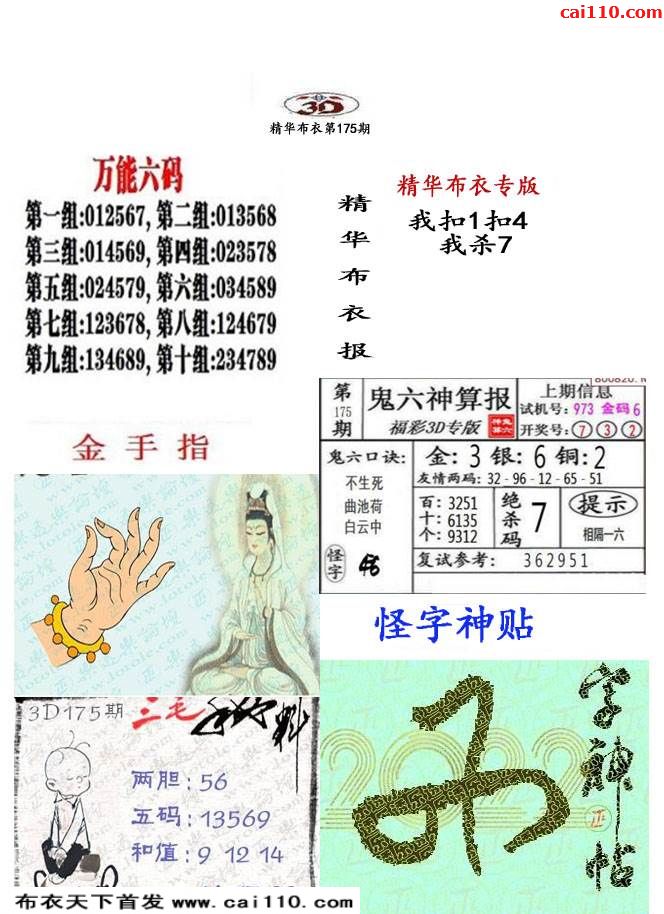 cai110.com
3D
精华布衣第175期
万能六码
第一组:012567, 第二组:013568
第三组:014569, 第四组:023578
第五组:024579, 第六组:034589
第七组:123678, 第八组:124679
第九组:134689, 第十组:234789
精华布衣报
精华布衣专版
我扣1扣4
我杀7
金手指
第175期
鬼六神算报
福彩3D专版
上期信息
试机号: 973 金码 6
开奖号: 7 3 2
鬼六口诀:
不生死
曲池荷
白云中
怪字
金: 3 银: 6 铜: 2
友情两码: 32-96-12-65-51
百: 3251
十: 6135
个: 9312
绝杀码 7
提示
相隔一六
复试参考: 362951
怪字神贴
字神帖
2022
3D175期
三毛
两胆: 56
五码: 13569
和值: 9 12 14
布衣天下首发 www.cai110.com